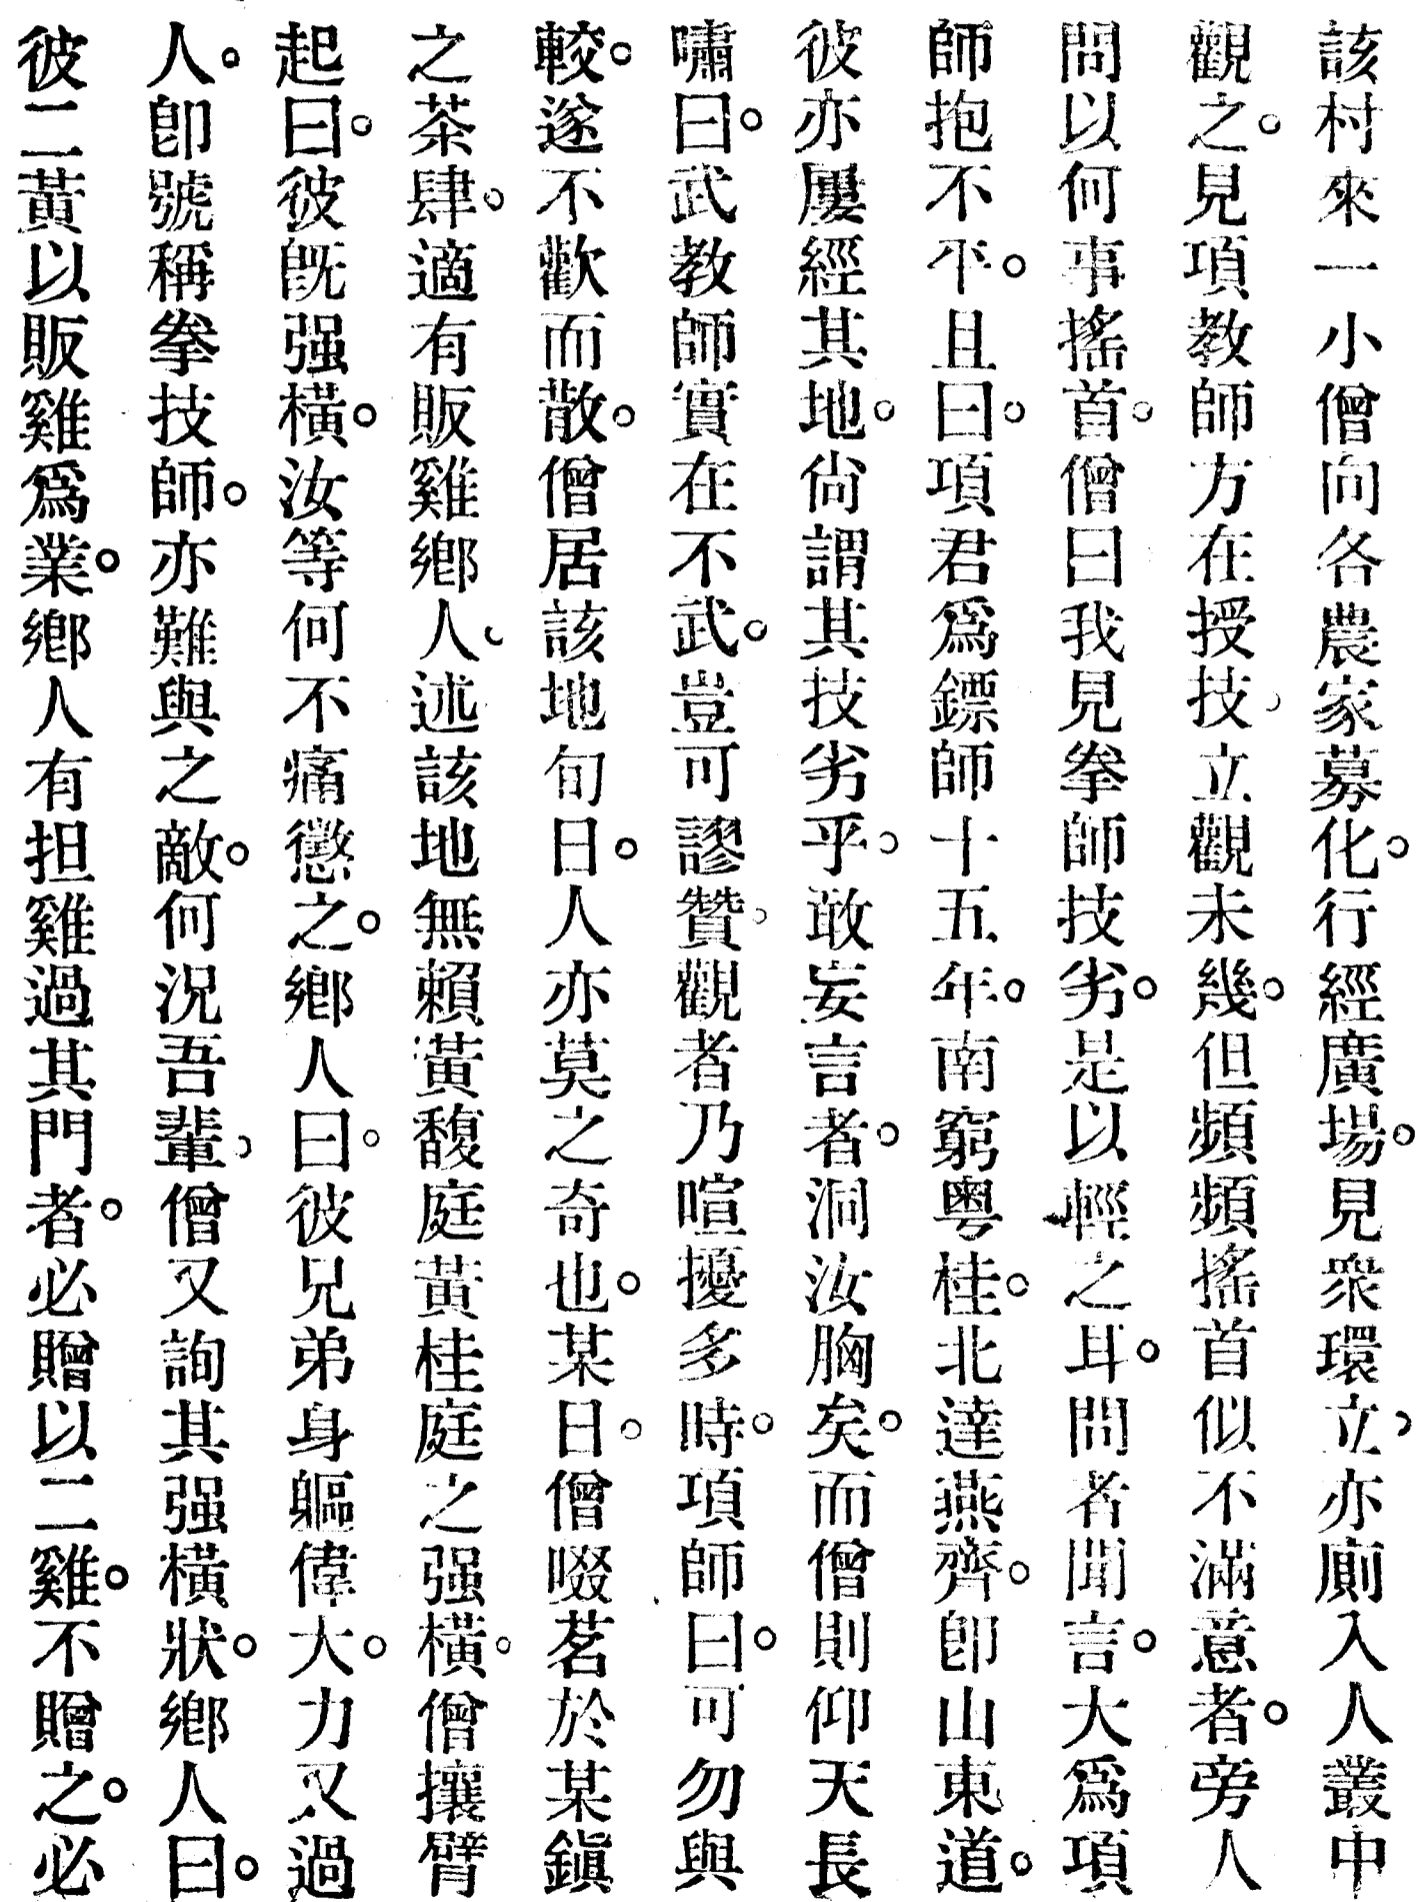 該村來一小僧向各農家募化。行經廣場。見衆環立。亦廁入人叢中
觀之。見項教師方在授技。立觀未幾。但頻頻搖首似不滿意者。旁人
問以何事搖首。僧曰我見拳師技劣。是以輕之耳。問者聞言。大爲項
師抱不平。且曰。項君爲鏢師十五年。南窮粤桂。北達燕齊。卽山東道。
彼亦屢經其地。尙謂其技劣乎。敢妄言者。洞汝胸矣。而僧則仰天長
嘯曰。武教師實在不武。豈可謬贊。觀者乃喧擾多時。項師曰。可勿與
較。遂不歡而散。僧居該地旬日。人亦莫之奇也。某日。僧啜茗於某鎭
之茶肆。適有販雞鄕人。述該地無賴黃馥庭黃桂庭之强橫。僧攘臂
起曰。彼旣强橫。汝等何不痛懲之。鄕人曰。彼兄弟身軀偉大。力又過
人。卽號稱拳技師。亦難與之敵。何況吾輩。僧又詢其强橫狀。鄕人曰。
彼二黃以販雞爲業。鄕人有担雞過其門者。必贈以二雞。不贈之。必